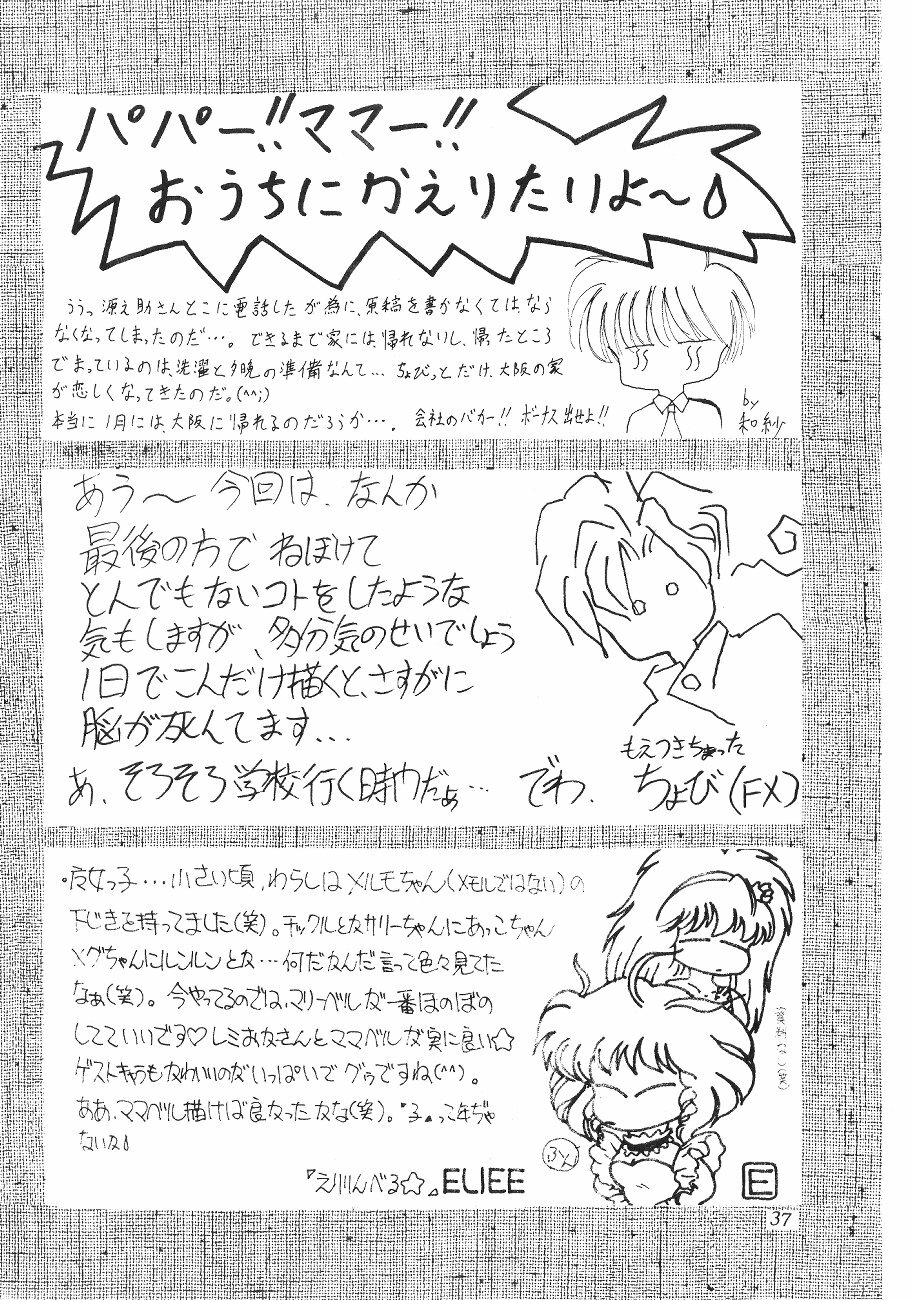 パパー!!ママー!!
おうちにかえりたいよ〜♪
ううっ源之助さんとこに電話したが為に、原稿を書かなくてはなら
なくなってしまったのだ…。できるまで家には帰れないし、帰ったところ
でまっているのは、洗濯と夕晩の準備なんて…ちょびっとだけ、大阪の家
が恋しくなってきたのだ。(^^;)
本当に1月には、大阪に帰れるのだろうか…。会社のバカー!!ボーナス出せよ!!
by
和紗
あう〜今回は、なんか
最後の方でねぼけて
とんでもないコトをしたような
気もしますが、多分気のせいでしょう
1日でこんだけ描くと、さすがに
脳が死んてます…
もえつきちゃった
あ、そろそろ学校行く時间だぁ…でわ.ちょび(FX)
・魔女っ子…小さい頃,わらしはメルモちゃん(メモルではない)の
下じきを持ってました(笑)。チックルとかサリーちゃんにあっこちゃん
メグちゃんにルンルンとか…何だかんだ言って色々見てた
なぁ(笑)。今やってるのでは、マリーベルが一番ほのぼの
してていいです♡レミおかさんとママベルが実に良い☆
ゲストキャラもかわいいのがいっぱいでグゥですね(^^)。
ああ、ママベル描けば良かったかな(笑)。"子"って年ぢゃ
ないか♪
『えりりんべる☆』ELIEE
E
37